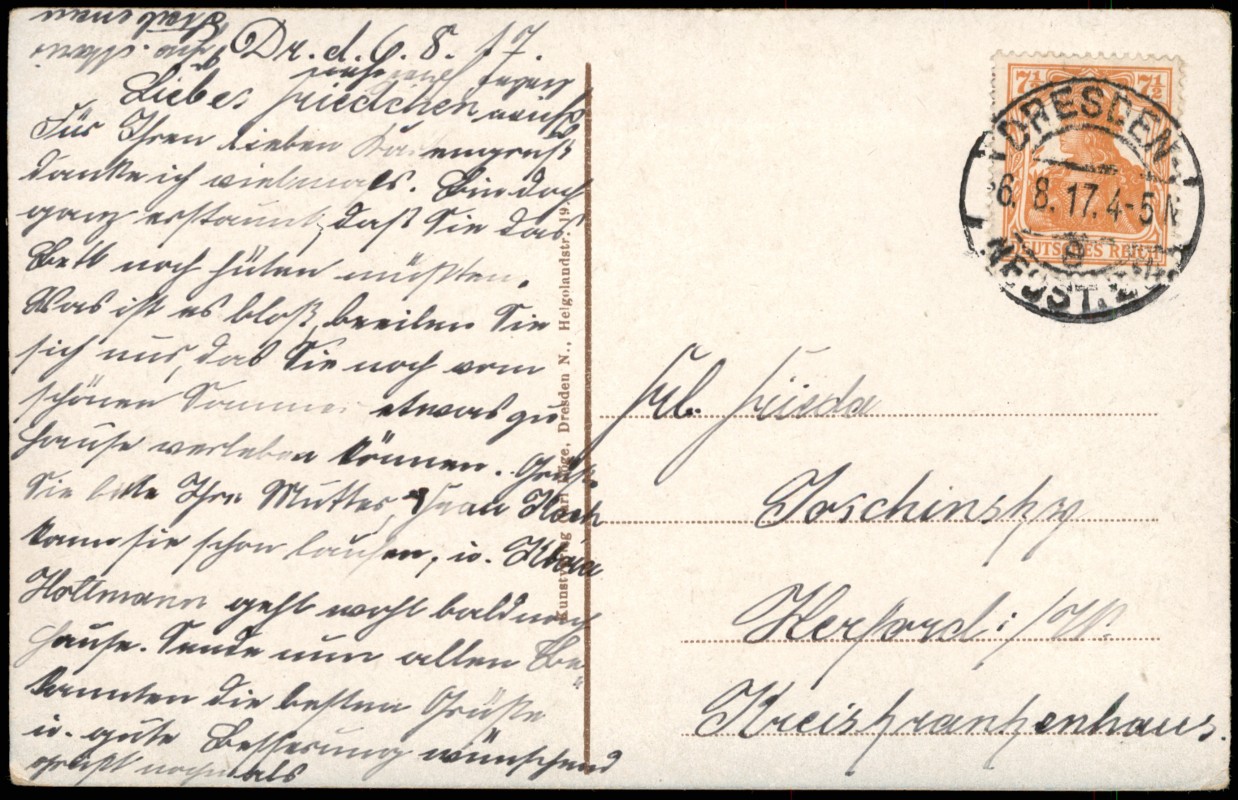 Dr. d. 6. 8. 17.
Liebes Friedchen
Für Ihren lieben Kartengruß
danke ich vielmals. Bin doch
ganz erstaunt, daß Sie das
Bett noch hüten müßten.
Was ist es bloß, beeilen Sie
sich nur, das Sie noch vom
schönen Sommer etwas zu
Hause verleben können. Grüß.
Sie bitte Ihre Mutter, Frau Koch
kann sie schon laufen, u. Klara
Hollmann geht wohl bald nach
Hause. Sende nun allen Be-
kannten die besten Grüße
u. gute Besserung wünschend
grüßt nochmals
7½ 7½
DEUTSCHES REICH
DRESDEN-
6. 8. 17. 4-5 N
NEUST.
Frl. Frieda
Joschinsky
Herford i/W.
Kreiskrankenhaus.
Kunstverlag Carl Döge, Dresden N., Helgolandstr. 19.